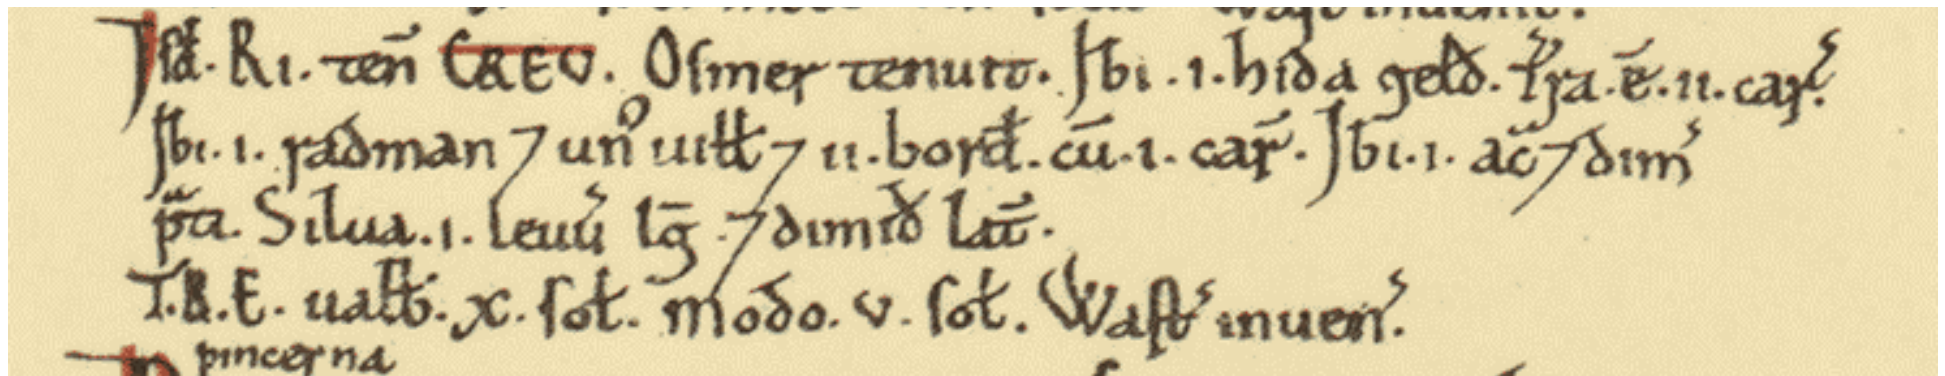 Isđ. Ri. teñ CREU. Osmer tenuit. Ibi .i. hida gelđ. Tr̃a .ē. ii. car̃.
Ibi .i. radman ⁊ unꝰ uiłł ⁊ ii. borđ. cū .i. car̃. Ibi .i. ac̃ ⁊ dim̃
p̃ti. Silua .i. leuū lḡ ⁊ dimiđ lat̃.
T.R.E. ualb̃. x. soł. modo. v. soł. Wast̃ inueñ.
pincerna